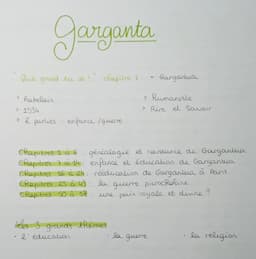 Garganta
"Que grand tu as!" chapitre 7 → Gargantua
° Rabelais ° Humaniste
° 1534 ° Rire et Savoir
° 2 parties : enfance / guerre
Chapitres 1 à 6 généalogie et naissance de Gargantua
Chapitres 7 à 24 enfance et éducation de Gargantua
Chapitres à 24 rééducation de Gargantua à Paris
Chapitres 25 à 49 la guerre picrocholine
Chapitres 50 à 58 une paix royale et divine ?
Les 3 grands thèmes
- l'éducation - la guerre - la religion